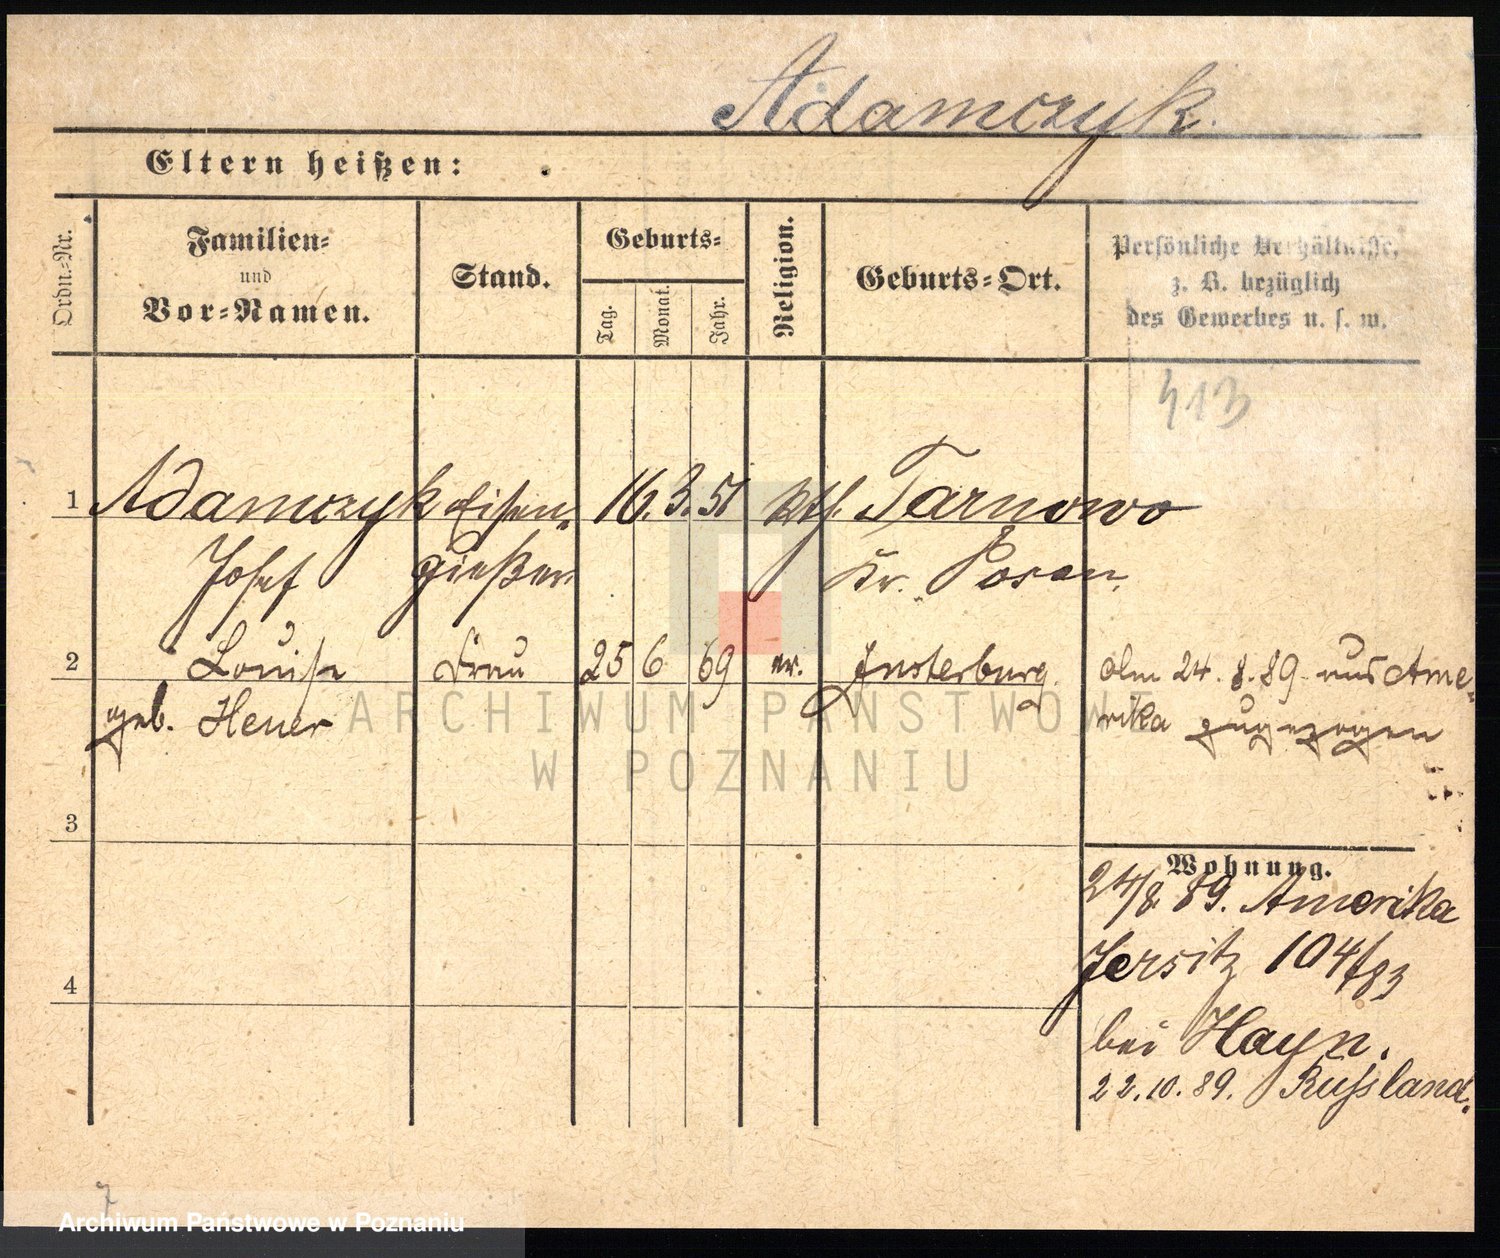 Adamczyk.
Eltern heißen:
Ordn.-Nr.
Familien-
und
Vor-Namen.
Stand.
Geburts-
Tag.
Monat.
Jahr.
Religion.
Geburts-Ort.
Persönliche Verhältnisse,
z. B. bezüglich
des Gewerbes u. s. w.
413
1 Adamczyk Eisen- 16. 3. 51 kth. Tarnowo
Josef gießer Kr. Posen.
2 Louise Frau 25 6 69 ev. Insterburg. 24. 8. 89. aus Ame-
geb. Heuer rika zugezogen
ARCHIWUM PAŃSTWOWE
W POZNANIU
3
Wohnung.
24/8 89. Amerika
Jersitz 104/83
4
bei Hayn.
22. 10. 89. Russland.
7
Archiwum Państwowe w Poznaniu